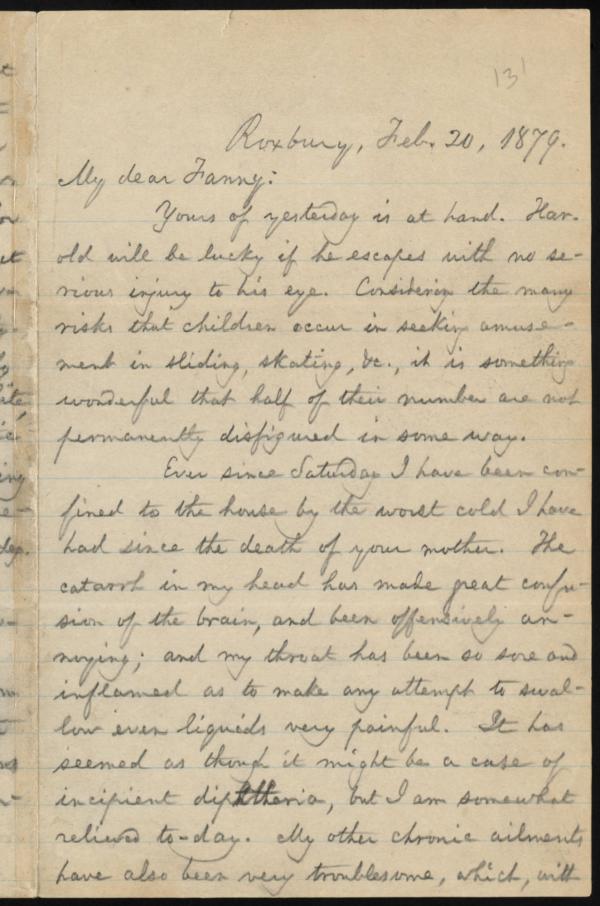 131
Roxbury, Feb. 20, 1879.
My dear Fanny:
Yours of yesterday is at hand. Har-
old will be lucky if he escapes with no se-
rious injury to his eye. Considering the many
risks that children occur in seeking amuse-
ment in sliding, skating, &c., it is something
wonderful that half of their number are not
permanently disfigured in some way.
Ever since Saturday I have been con-
fined to the house by the worst cold I have
had since the death of your mother. The
catarrh in my head has made great confu-
sion of the brain, and been offensively an-
noying; and my throat has been so sore and
inflamed as to make any attempt to swal-
low even liquids very painful. It has
seemed as though it might be a case of
incipient diphtheria, but I am somewhat
relieved to-day. My other chronic ailments
have also been very troublesome, which, with